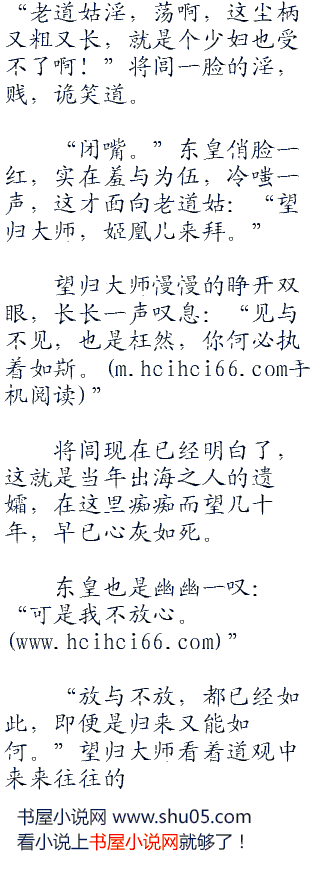 “老道姑淫，荡啊，这尘柄
又粗又长，就是个少妇也受
不了啊！”将闾一脸的淫，
贱，诡笑道。
“闭嘴。”东皇俏脸一
红，实在羞与为伍，冷嗤一
声，这才面向老道姑：“望
归大师，姬凰儿来拜。”
望归大师慢慢的睁开双
眼，长长一声叹息：“见与
不见，也是枉然，你何必执
着如斯。(m.hcihci66.com手
机阅读)”
将闾现在已经明白了，
这就是当年出海之人的遗
孀，在这里痴痴而望几十
年，早已心灰如死。
东皇也是幽幽一叹：
“可是我不放心。
(www.hcihci66.com)”
“放与不放，都已经如
此，即便是归来又能如
何。”望归大师看着道观中
来来往往的
书屋小说网 www.shu05.com
看小说上书屋小说网就够了！